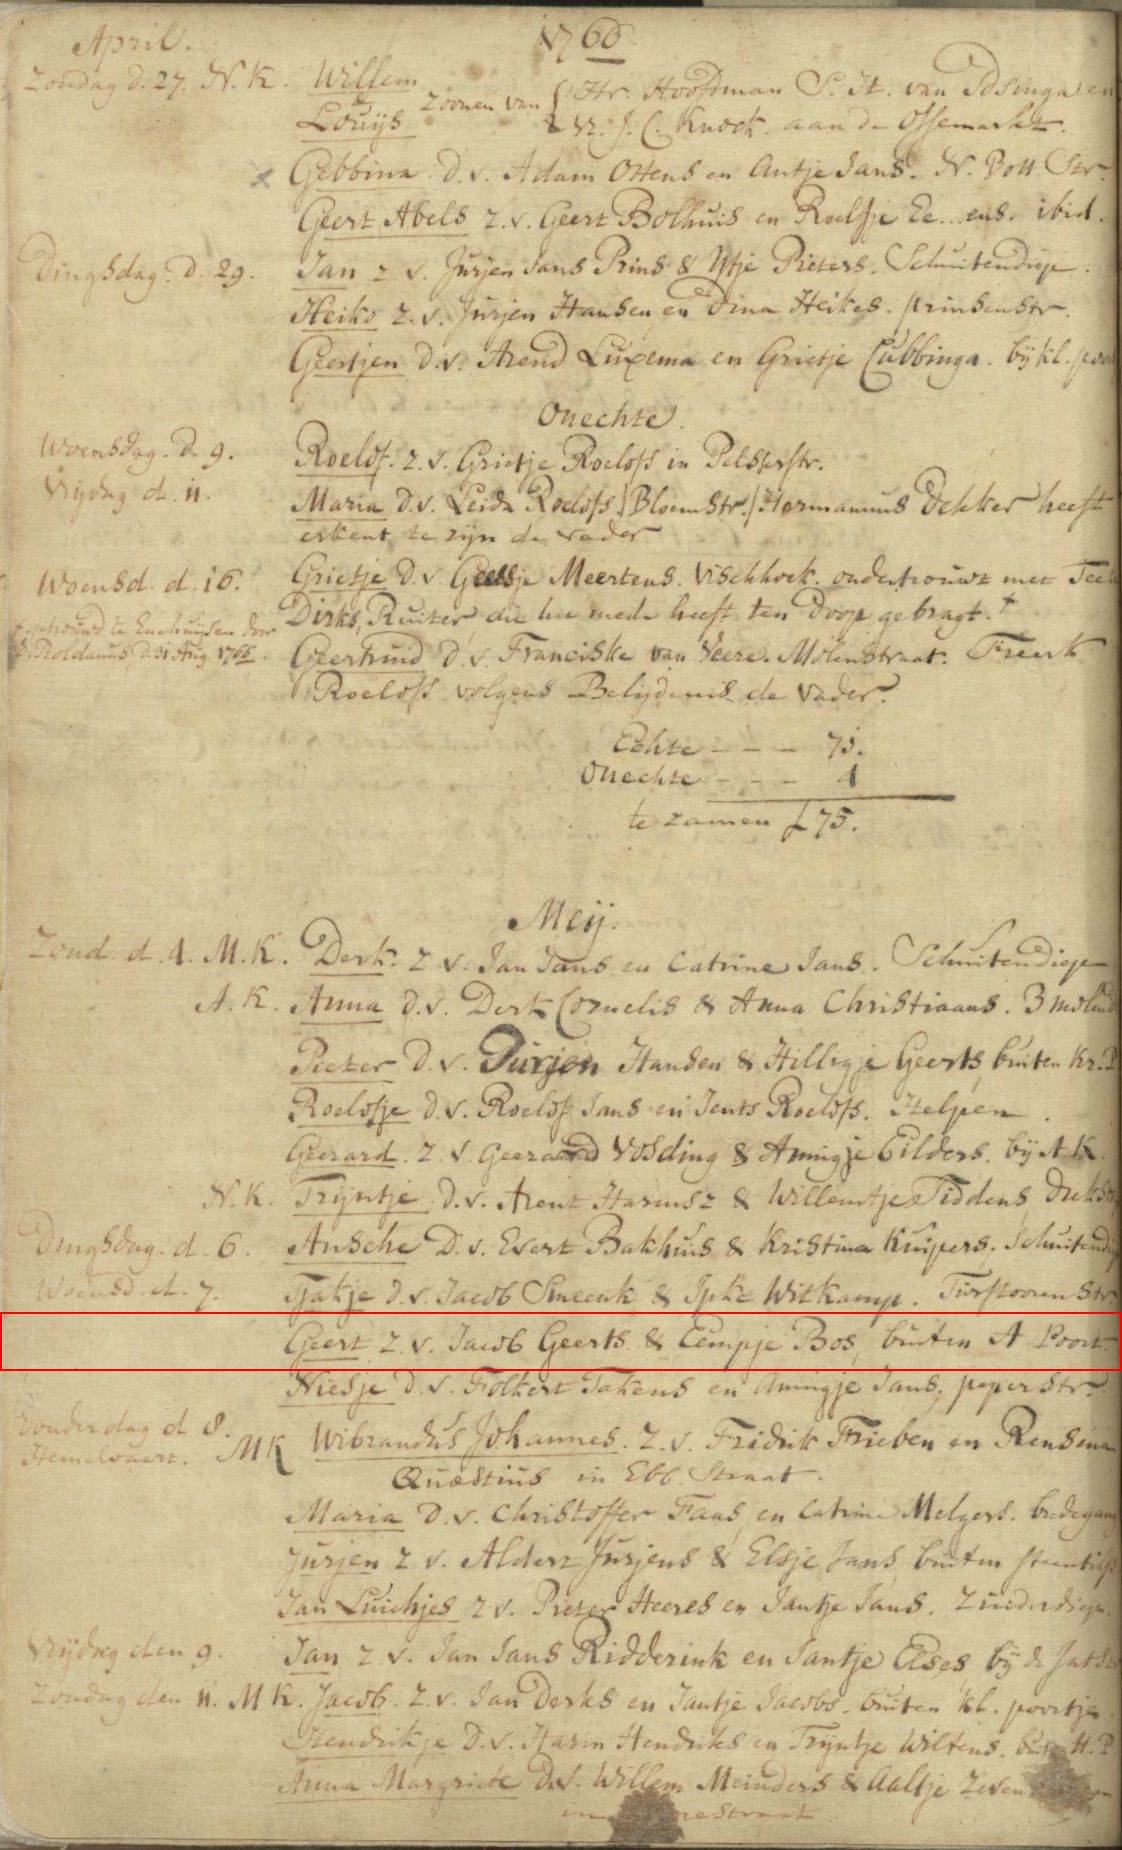 April.
1766
Zondag d. 27. N. K. Willem
& Louijs Zoonen van Hr. Hooftman S. H. van Idsinga en
Vr. J. C. Knock. aan de Ossemarkt.
Gebbina D. v. Adam Ottens en Antje Jans. N. Bott. Str.
Geert Abels z. v. Geert Bolhuis en Roelfje Ee...ens. ibid.
Dingsdag. D. 29. Jan z v. Jurjen Jans Prins & Ytje Pieters. Schuitendiep.
Heiko z. v. Jurjen Hansen en Dina Heikes. prinsenstr.
Geertjen D. v. Arend Luxema en Grietje Cubbinga. bij kl. poor
Onechte.
Woensdag. D. 9. Roelof. z. v. Grietje Roelofs in Pelsterstr.
Vrijdag d. 11. Maria D. v. Leida Roelofs / Bloemstr. / Hermannus Dekker heeft
erkent te zijn de vader
Woensd. d. 16. Grietje D. v Geesje Meertens. Vischhoek. ondertrouwt met
Dirks, Ruiter, die hu mede heeft ten Doop gebragt. †
† getrouwd te Enchuijsen door
Roldanus, D. 31 Aug. 1766.
Geertruid D. v. Franciske van Veere. Molenstraat. Freerk
Roelofs volgens Belijdenis de vader.
Echte - - - 71.
Onechte - - - 4
te zamen 75.
Meij.
Zond. d. 4. M. K. Derk. z. v. Jan Jans en Catrine Jans. Schuitendiep
A. K. Anna d. v. Derk Cornelis & Anna Christiaans. 3 molend
Pieter D. v. Jurjen Handen & Hilligje Geerts, buiten Kr. P
Roelofje D. v. Roelof Jans en Jents Roelofs. Helpen.
Geerard. z. v. Geeraard Vosding & Annigje Eilders. bij A. K.
N. K. Trijntje D. v. Arent Harmsz & Willemtje Tiddens,
Dingsdag. d. 6. Ansche D. v. Evert Bakhuis & Kristina Kuipers. Schuitendie
Woensd. d. 7. Tjakje d. v. Jacob Smeenk & Ipke Witkamp. Turftooren Str.
Geert z. v. Jacob Geerts & Eempje Bos, buiten A Poort.
Niesje D. v. Folkert Takens en Annigje Jans, peperstr.
Donderdag d 8.
Hemelvaart. M K Wibrandus Johannes. z. v. Fredrik Frieben en Rensina
Quæstius in Ebb. Straat.
Maria D. v. Christoffer Faas, en Catrina Melgers. bredegang
Jurjen z v. Aldert Jurjens & Elsje Jans buiten steentil
Jan Luichjes z v. Pieter Heeres en Jantje Jans. Zuiderdiep.
Vrijdag den 9. Jan z. v. Jan Jans Ridderink en Jantje Elses bij de
Zondag den 11. M K. Jacob. z. v. Jan Derks en Jantje Jacobs. buiten kl. poortje.
Hendrikje D. v. Harm Hendriks en Trijntje Wiltens. H. P
Anna Margriete D. v. Willem Meinders & Aaltje Zeven
straat